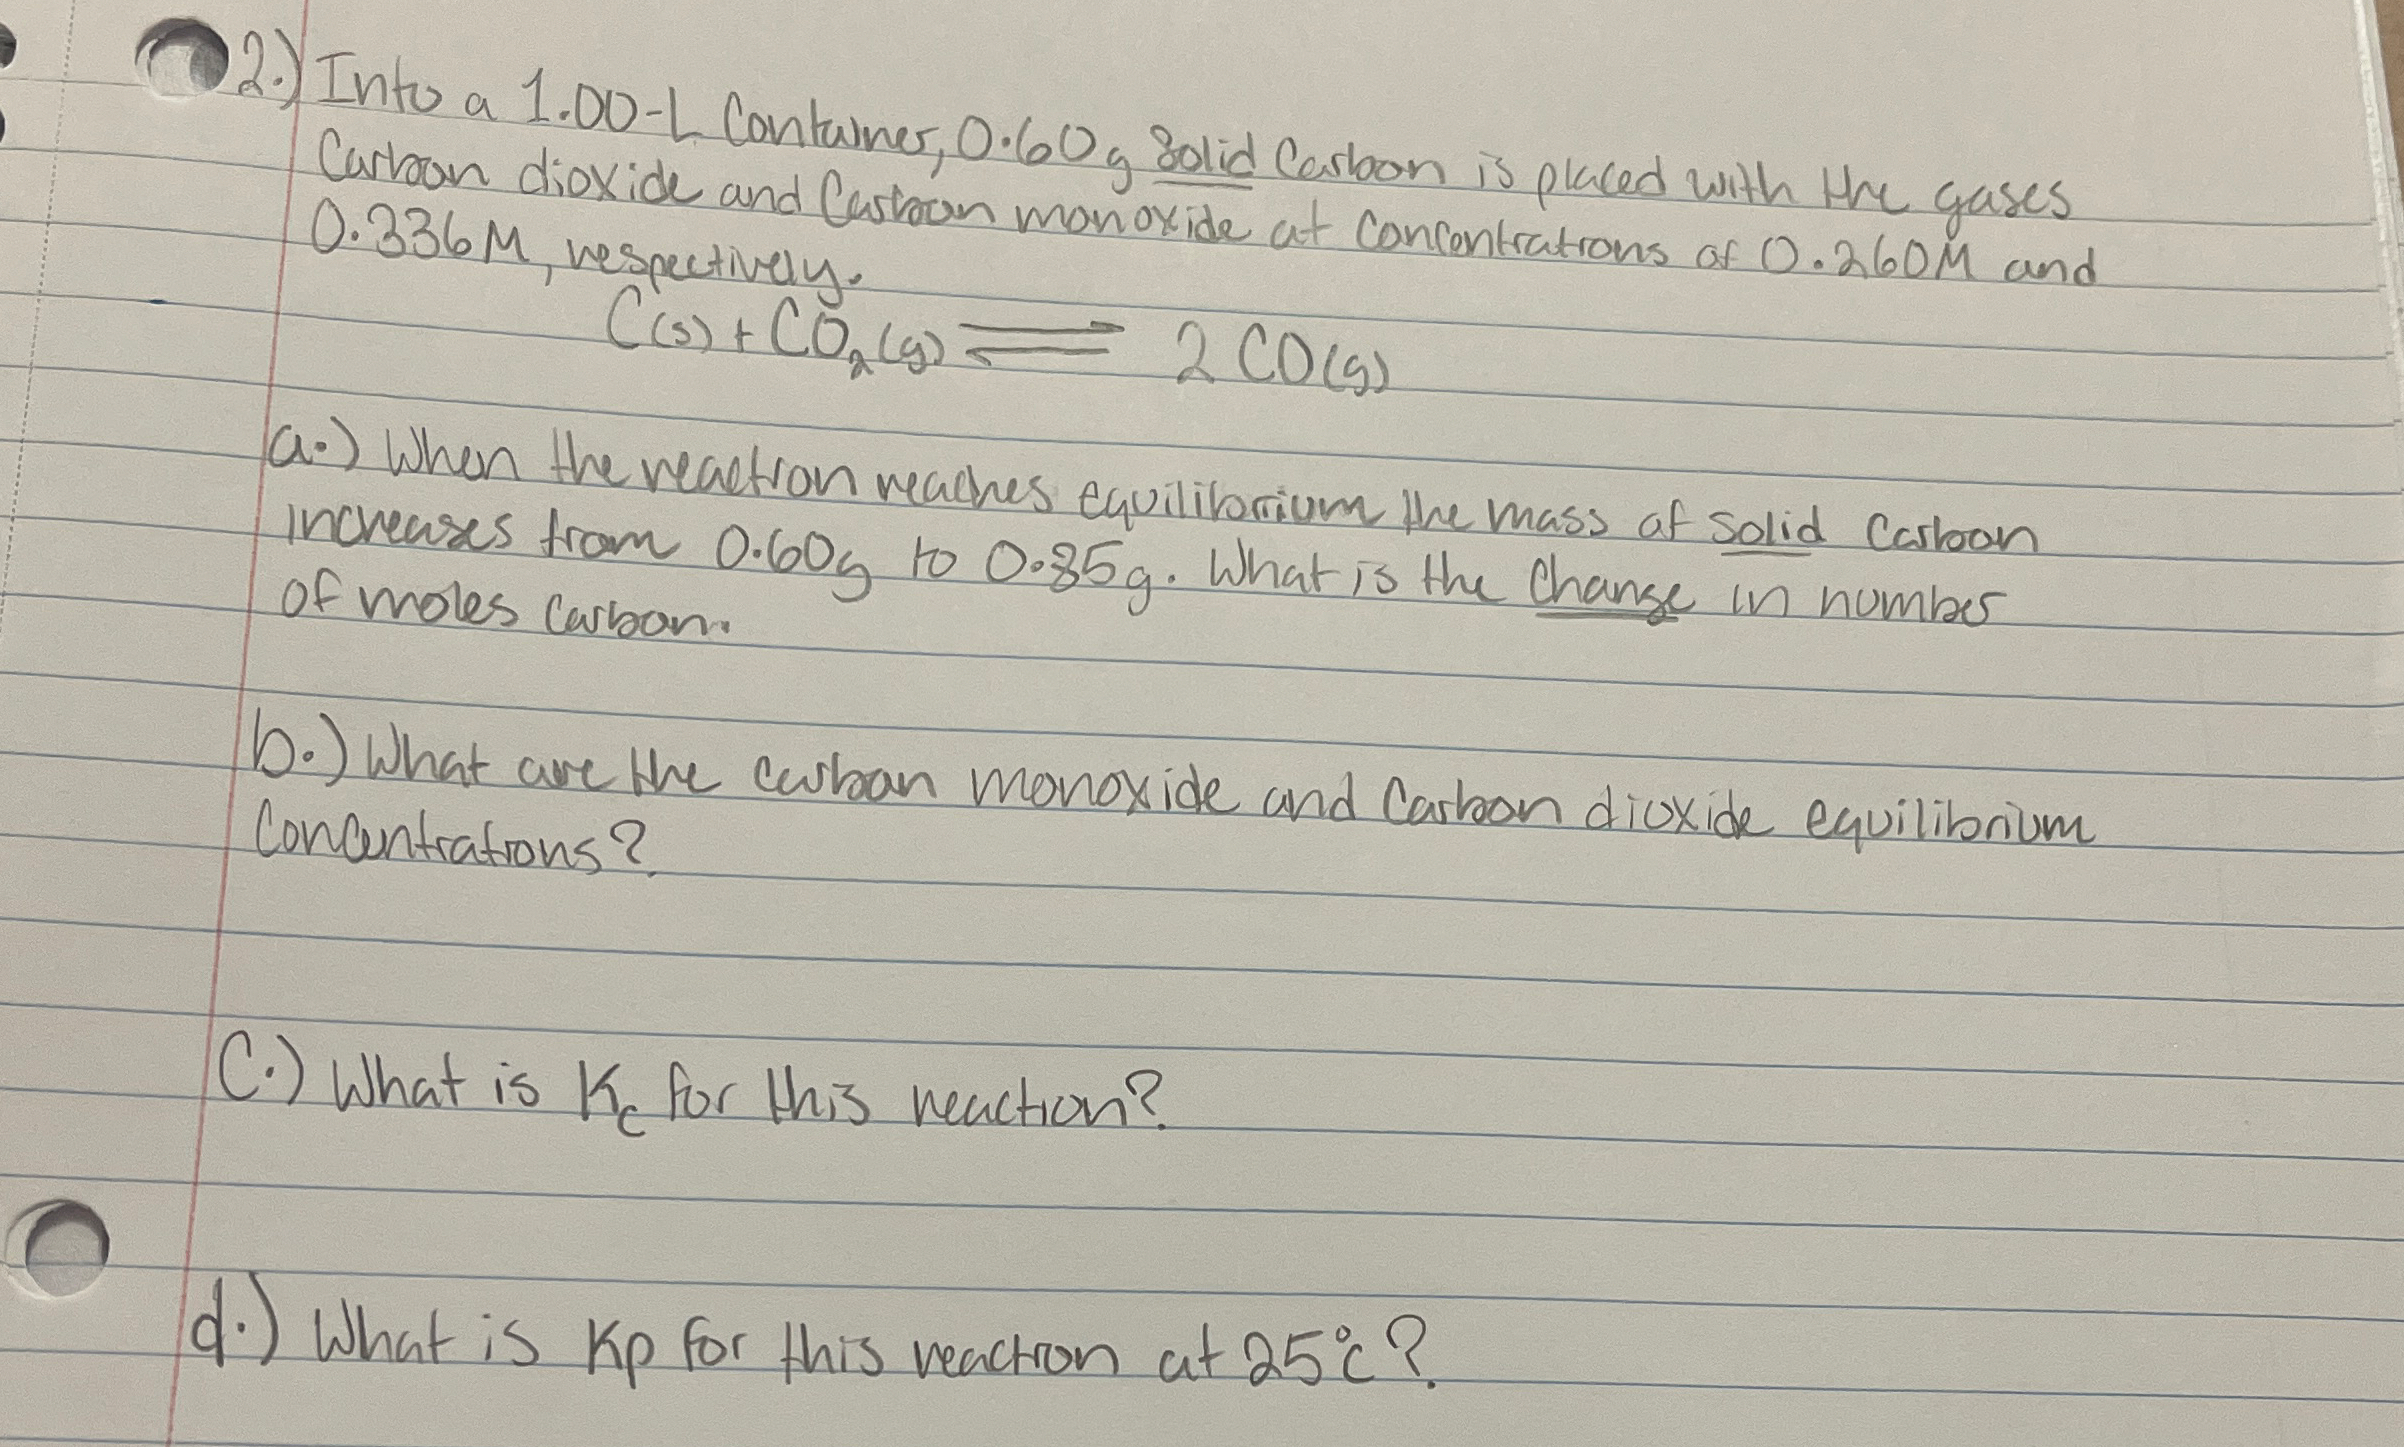 2.) Into a 1.00-L Container, 0.60g Solid Carbon is placed with the gases
Carbon dioxide and Carbon monoxide at Concentrations of 0.260M and
0.336M, respectively.
C(s) + CO₂(g) ⇌ 2 CO(g)
a.) When the reaction reaches equilibrium the mass of solid Carbon
increases from 0.60g to 0.85g. What is the Change in number
of moles Carbon.
b.) What are the carbon monoxide and Carbon dioxide equilibrium
Concentrations?
C.) What is Kc for this reaction?
d.) What is Kp for this reaction at 25°C?